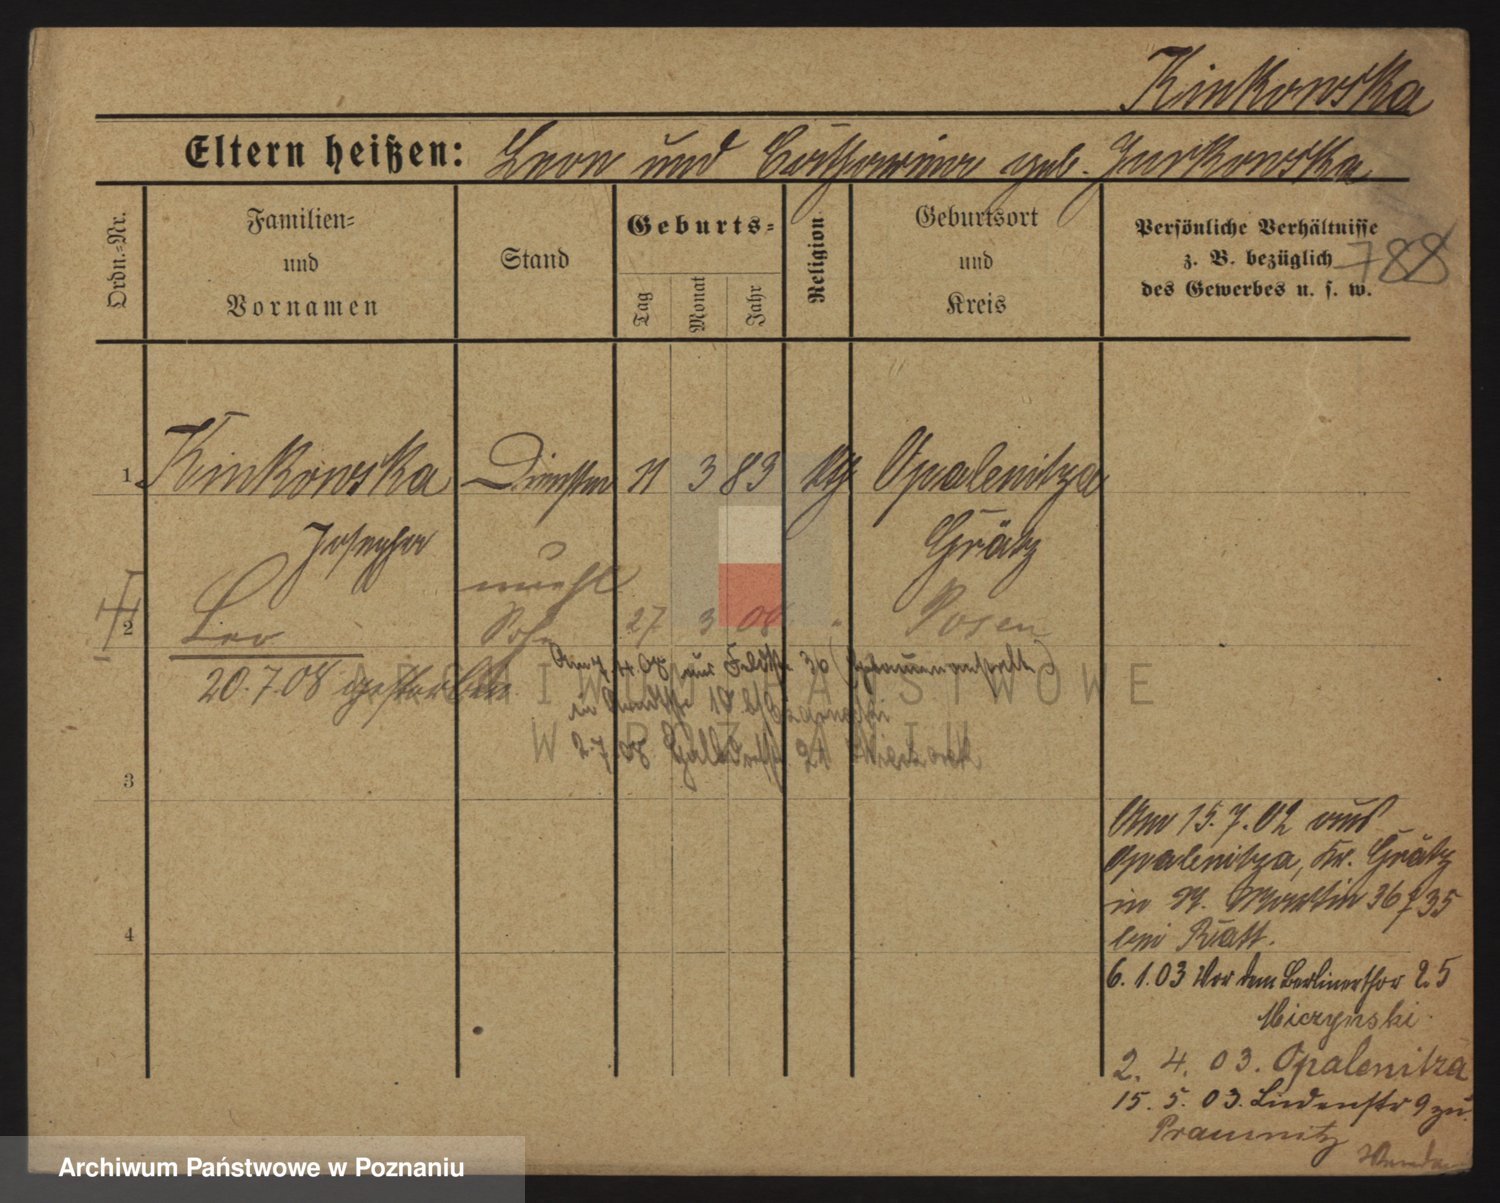 Kinkowska
Eltern heißen: Leon und Catharina geb. Jurkowska
Ordn.-Nr.
Familien- und Vornamen
Stand
Geburts-
Tag
Monat
Jahr
Religion
Geburtsort und Kreis
Persönliche Verhältnisse
z. B. bezüglich
des Gewerbes u. s. w.
788
1 Kinkowska Dienstm 11 3 83 kth Opalenitza
Josepha Grätz
unehl
2 Leo Sohn 27 3 08 " Posen
20.7.08 gestorben
aus Feldstr 36
in
2.7.08 21
3
4
Am 15.7.02 aus
Opalenitza, Kr. Grätz
in St. Martin 36 35
bei Ratt.
6.1.03 Vor dem Berlinerthor 25
Miczynski
2. 4. 03. Opalenitza
15. 5. 03. Lindenstr 9 zu
Praumitz
ARCHIWUM PAŃSTWOWE
W POZNANIU
Archiwum Państwowe w Poznaniu